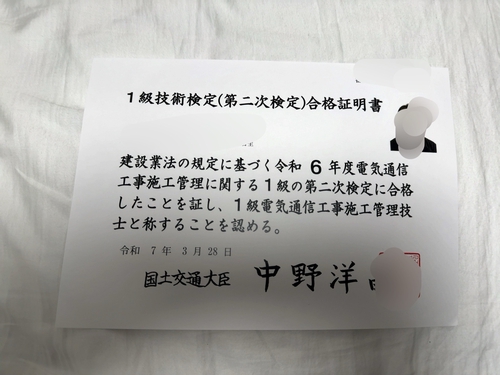 1級技術検定(第二次検定)合格証明書
建設業法の規定に基づく令和 6 年度電気通信
工事施工管理に関する1級の第二次検定に合格
したことを証し、1級電気通信工事施工管理技
士と称することを認める。
令和 7 年 3 月 28 日
国土交通大臣 中野洋